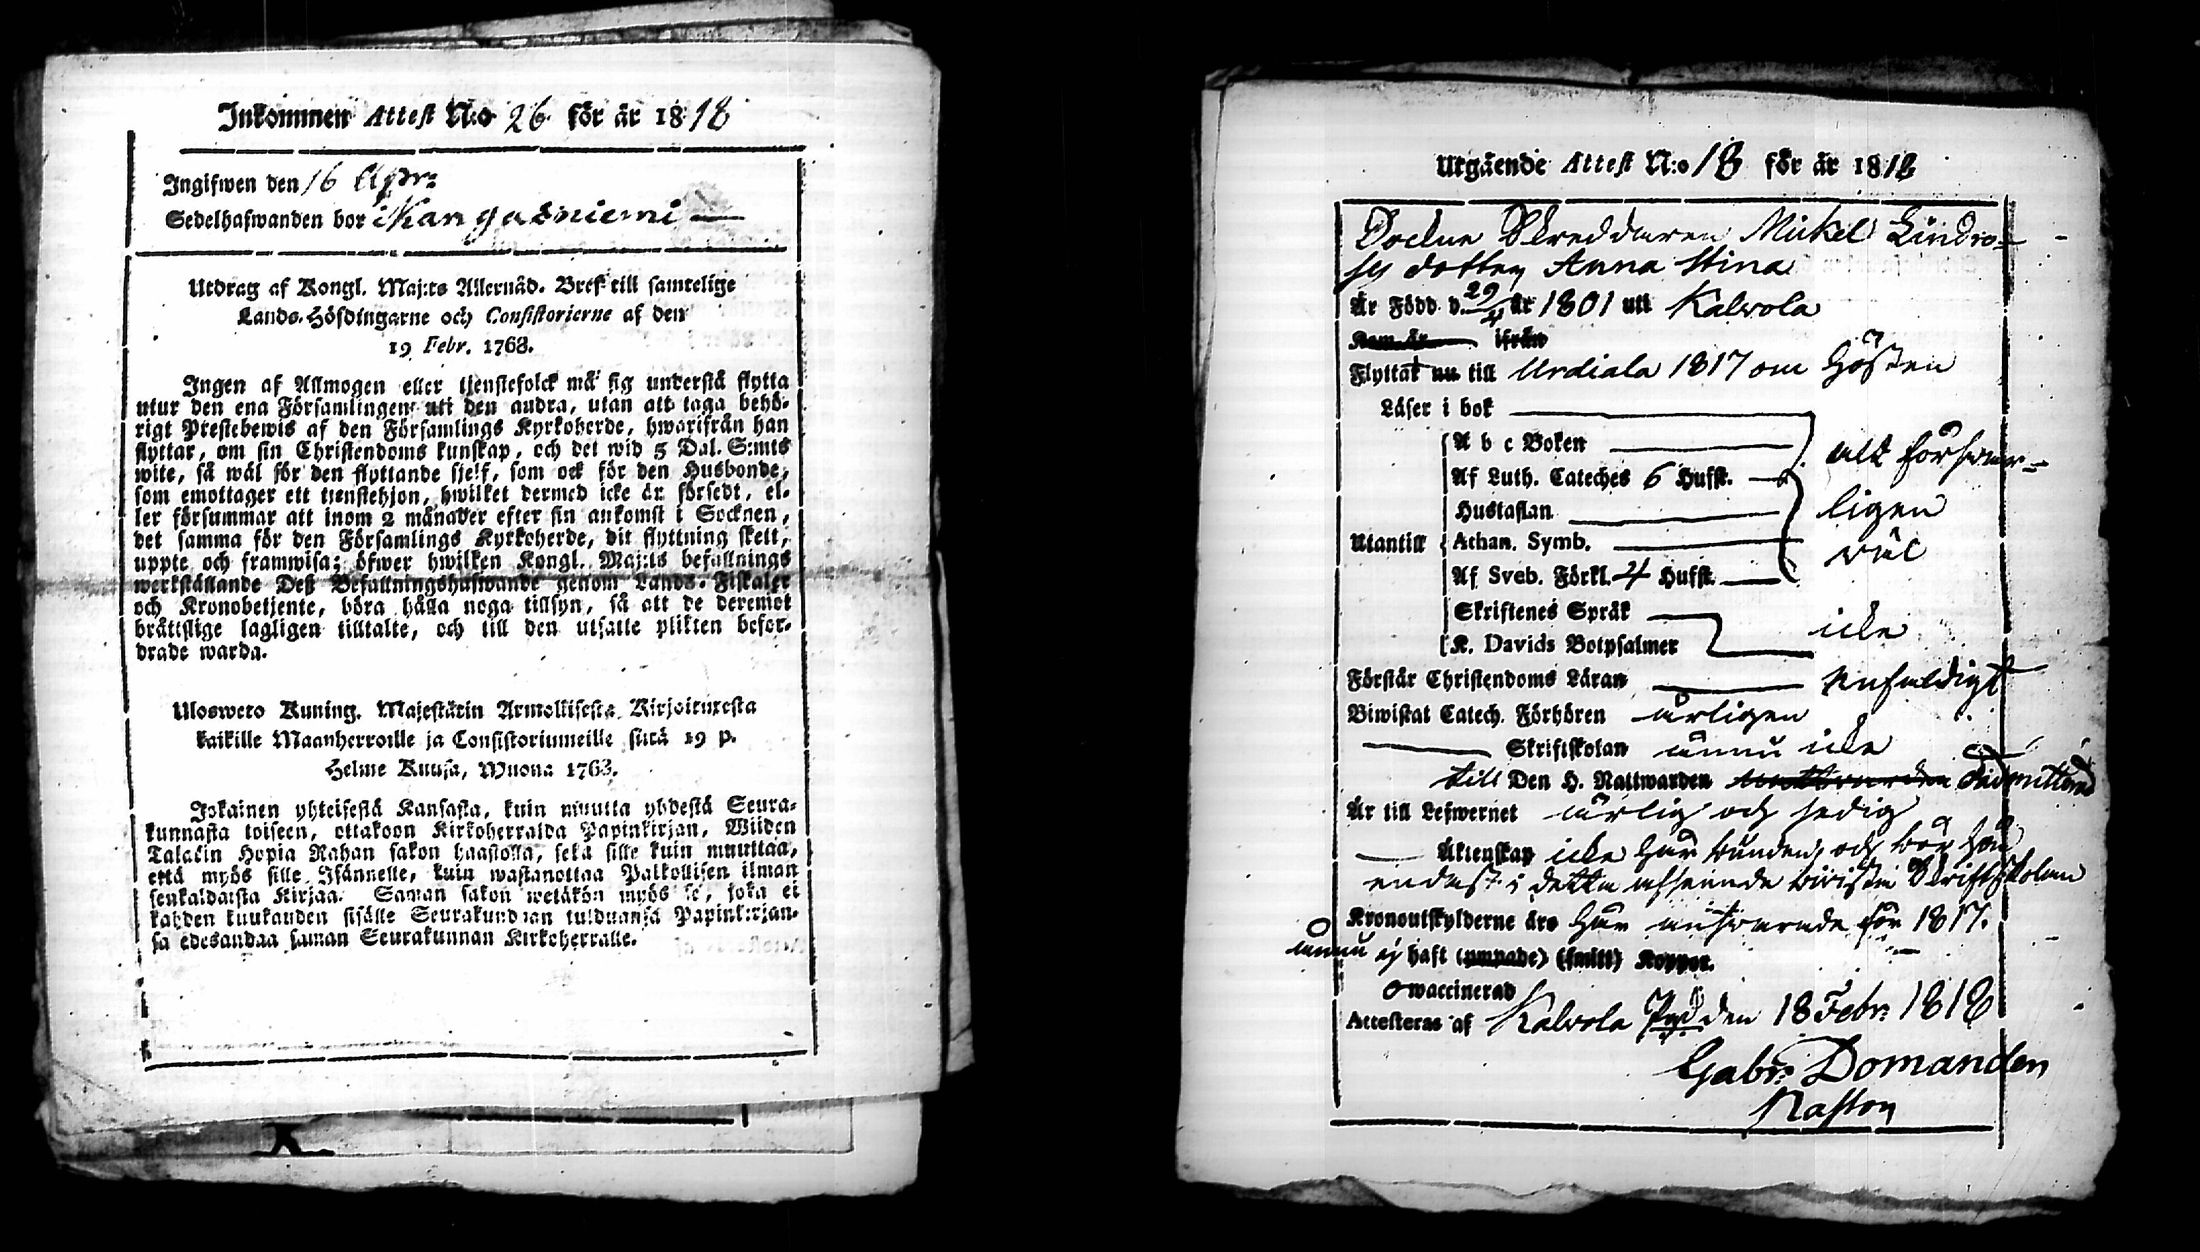 Inkommen Attest N:o 26 för år 1818
Ingifwen den 16 Apr:
Sedelhafwanden bor i Kangasniemi
Utdrag af Kongl. Maj:ts Allernåd. Bref till samtelige
Lands-Höfdingarne och Consistorierne af den
19 Febr. 1768.
Ingen af Allmogen eller tjenstefolck må sig understå flytta
utur den ena Församlingen uti den andra, utan att taga behö-
rigt Prestebewis af den Församlings Kyrkoherde, hwarifrån han
flyttar, om sin Christendoms kunskap, och det wid 5 Dal. S:mts
wite, så wäl för den flyttande sjelf, som ock för den Husbonde,
som emottager ett tienstehjon, hwilket dermed icke är försedt, el-
ler försummar att inom 2 månader efter sin ankomst i Socknen,
det samma för den Församlings Kyrkoherde, dit flyttning skett,
uppte och framwisa; öfwer hwilken Kongl. Maj:ts befallnings
werkställande Deß Befallningshafwande genom Lands-Fiskaler
och Kronobetjente, böra hålla noga tillsyn, så att de deremot
bråttslige lagligen tilltalte, och till den utsatte plikten befor-
drade warda.
Ulosweto Kuning. Majestärin Armollisesta Kirjoituresta
kaikille Maanherroille ja Consistoriumeille siitä 19 p.
Helme Kuusa, Wuona 1763.
Jokainen yhteisestä Kansasta, kuin muutta yhdestä Seura-
kunnasta toiseen, ottakoon Kirkoherralda Papinkirjan, Wiiden
Taladin Hopia Rahan sakon haastolla, sekä sille kuin muuttaa,
että myös sille Isännelle, kuin wastanottaa Palkollisen ilman
senkaldaista Kirjaa. Saman sakon wetäkön myös se, joka ei
kahden kuukauden sisälle Seurakundaan tulduansa Papinkirjan-
sa edesandaa saman Seurakunnan Kirkoherralle.
Utgående Attest N:o 18 för år 1818
Sockne Skreddaren Mickel Lindro-
s dotter Anna Stina
Är Född d. 29/4 år 1801 uti Kalvola
Kom år ifrån
Flyttat nu till Urdiala 1817 om Hösten
Läser i bok
A b c Boken
alt försvar-
Af Luth. Cateches 6 Hufst.
Hustaflan
ligen
Utantill
Athan. Symb.
väl
Af Sveb. Förkl. 4 Hufst.
Skriftenes Språk
icke
K. Davids Botpsalmer
Förstår Christendoms Läran enfaldigt
Biwistat Catech. Förhören årligen
Skriftskolan ännu icke
till Den H. Nattwarden admitterad
Är till Lefwernet ärlig och sedig
Äktenskap icke har bunden, och bör hon
endast i detta afseende bivista Skriftskolan
Kronoutskylderne äro har ansvarade för 1817.
ännu ej haft (ympade) (smitt) Koppor.
owaccinerad
Attesteras af Kalvola Pgd den 18 Febr: 1818
Gabr: Domanden
Pastor